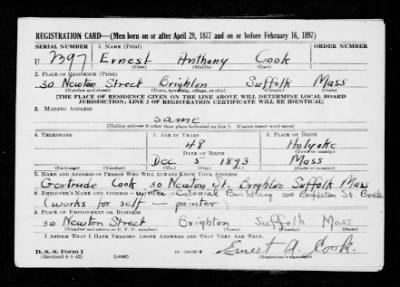 REGISTRATION CARD—(Men born on or after April 28, 1877 and on or before February 16, 1897)
SERIAL NUMBER 1. NAME (Print) ORDER NUMBER
U 2397 Ernest Anthony Cook
(First) (Middle) (Last)
2. PLACE OF RESIDENCE (Print)
30 Newton Street Brighton Suffolk Mass
(Number and street) (Town, township, village, or city) (County) (State)
[THE PLACE OF RESIDENCE GIVEN ON THE LINE ABOVE WILL DETERMINE LOCAL BOARD
JURISDICTION; LINE 2 OF REGISTRATION CERTIFICATE WILL BE IDENTICAL]
3. MAILING ADDRESS
same
(Mailing address if other than place indicated on line 2. If same insert word same)
4. TELEPHONE 5. AGE IN YEARS 6. PLACE OF BIRTH
48 Holyoke
DATE OF BIRTH (Town or county)
Dec 5 1893 Mass
(Exchange) (Number) (Mo.) (Day) (Yr.) (State or country)
7. NAME AND ADDRESS OF PERSON WHO WILL ALWAYS KNOW YOUR ADDRESS
Gertrude Cook 30 Newton St. Brighton Suffolk Mass
8. EMPLOYER'S NAME AND ADDRESS Colonial Building 100 Boylston St
(works for self - printer)
9. PLACE OF EMPLOYMENT OR BUSINESS
30 Newton Street Brighton Suffolk Mass
(Number and street or R. F. D. number) (Town) (County) (State)
I AFFIRM THAT I HAVE VERIFIED ABOVE ANSWERS AND THAT THEY ARE TRUE.
D. S. S. Form 1 Ernest A. Cook
(Revised 4-1-42) (over) (Registrant's signature)